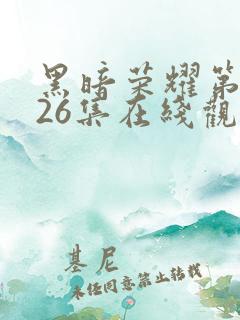 黑暗荣耀第
26集在线觀
基尼
未经同意禁止转载